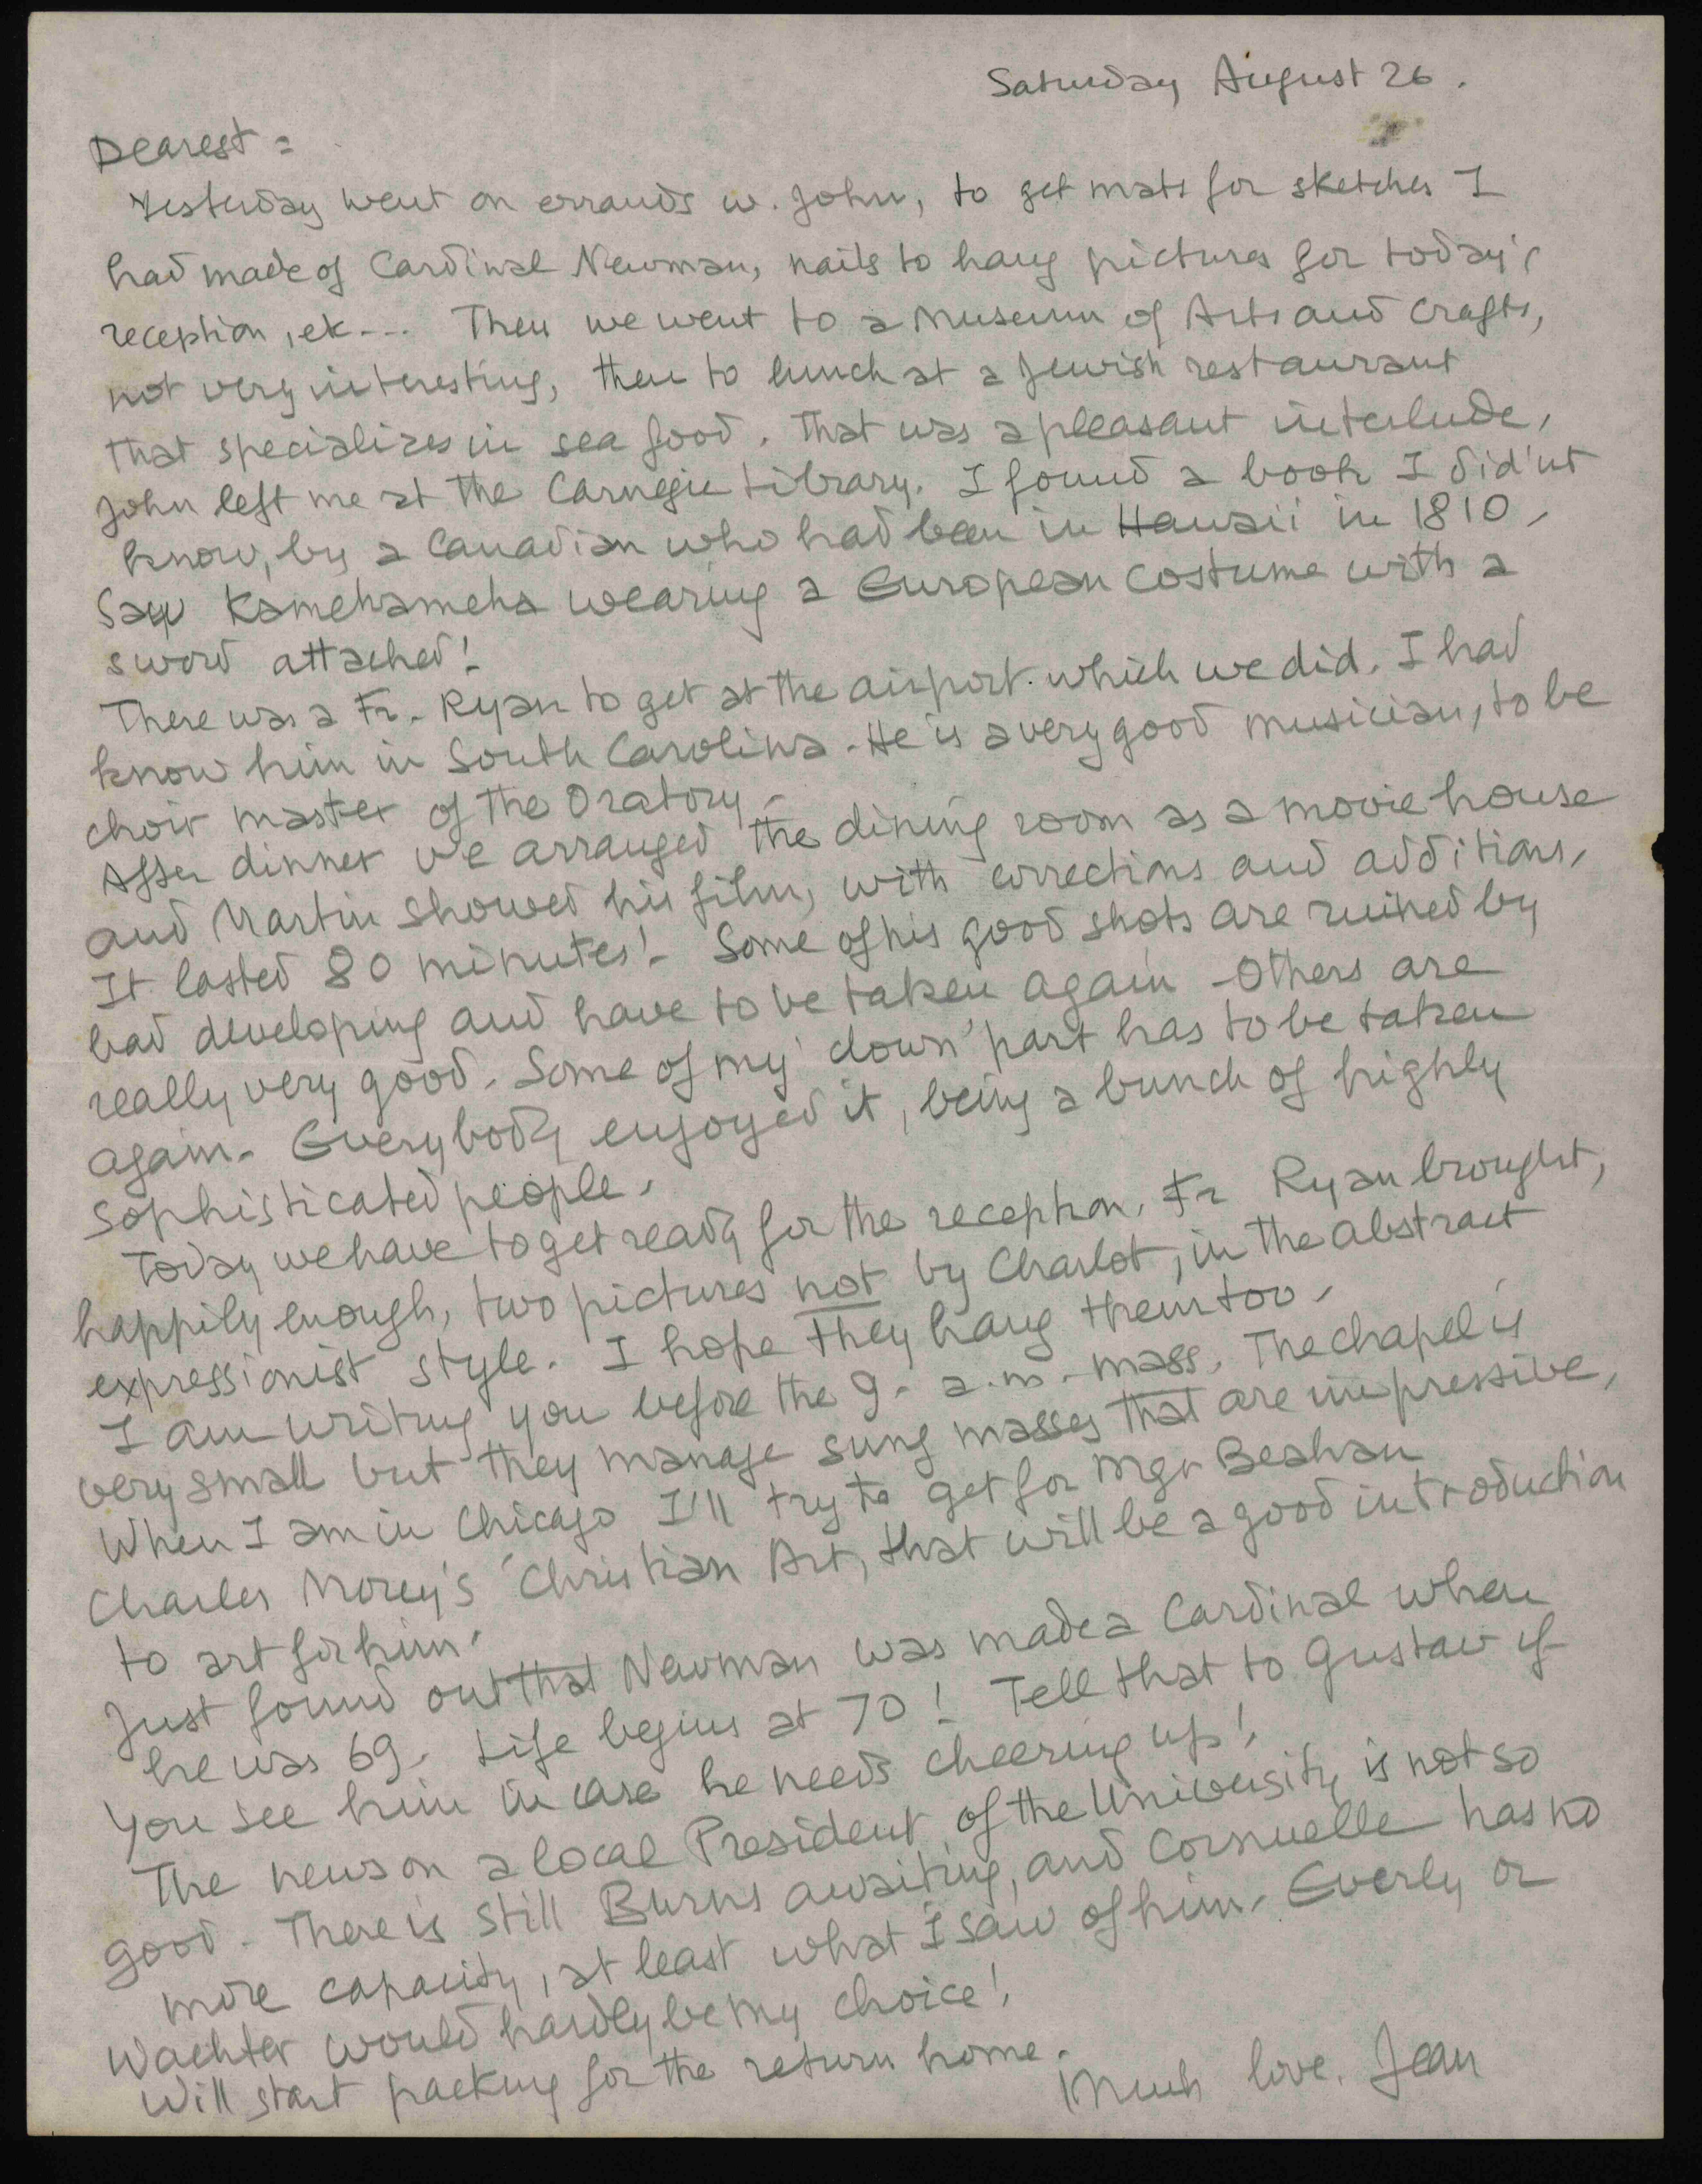 Saturday August 26.
Dearest =
Yesterday went on errands w. John, to get mats for sketches I
had made of Cardinal Newman, nails to hang pictures for today's
reception, etc--- Then we went to a Museum of Arts and Crafts,
not very interesting, then to lunch at a Jewish restaurant
that specializes in sea food. That was a pleasant interlude.
John left me at the Carnegie Library. I found a book I did'nt
know, by a Canadian who had been in Hawaii in 1810.
Saw Kamehameha wearing a European costume with a
sword attached!
There was a Fr. Ryan to get at the airport. which we did. I had
know him in South Carolina. He is a very good musician, to be
choir master of the Oratory.
After dinner we arranged the dining room as a movie house
and Martin showed his film, with corrections and additions.
It lasted 80 minutes! Some of his good shots are ruined by
bad developing and have to be taken again - Others are
really very good. Some of my 'clown' part has to be taken
again. Everybody enjoyed it, being a bunch of highly
sophisticated people.
Today we have to get ready for the reception. Fr Ryan brought,
happily enough, two pictures not by Charlot, in the abstract
expressionist style. I hope they hang them too.
I am writing you before the 9. a.m. mass. The chapel is
very small but they manage sung masses that are impressive.
When I am in Chicago I'll try to get for Mgr Beahan
Charles Morey's 'Christian Art, that will be a good introduction
to art for him.
Just found out that Newman was made a Cardinal when
he was 69. Life begins at 70! Tell that to Gustav if
you see him in case he needs cheering up!
The news on a local President of the University is not so
good. There is still Burns awaiting, and Cornuelle has no
more capacity, at least what I saw of him. Everly or
Wachter would hardly be my choice!
Will start packing for the return home.
Much love. Jean